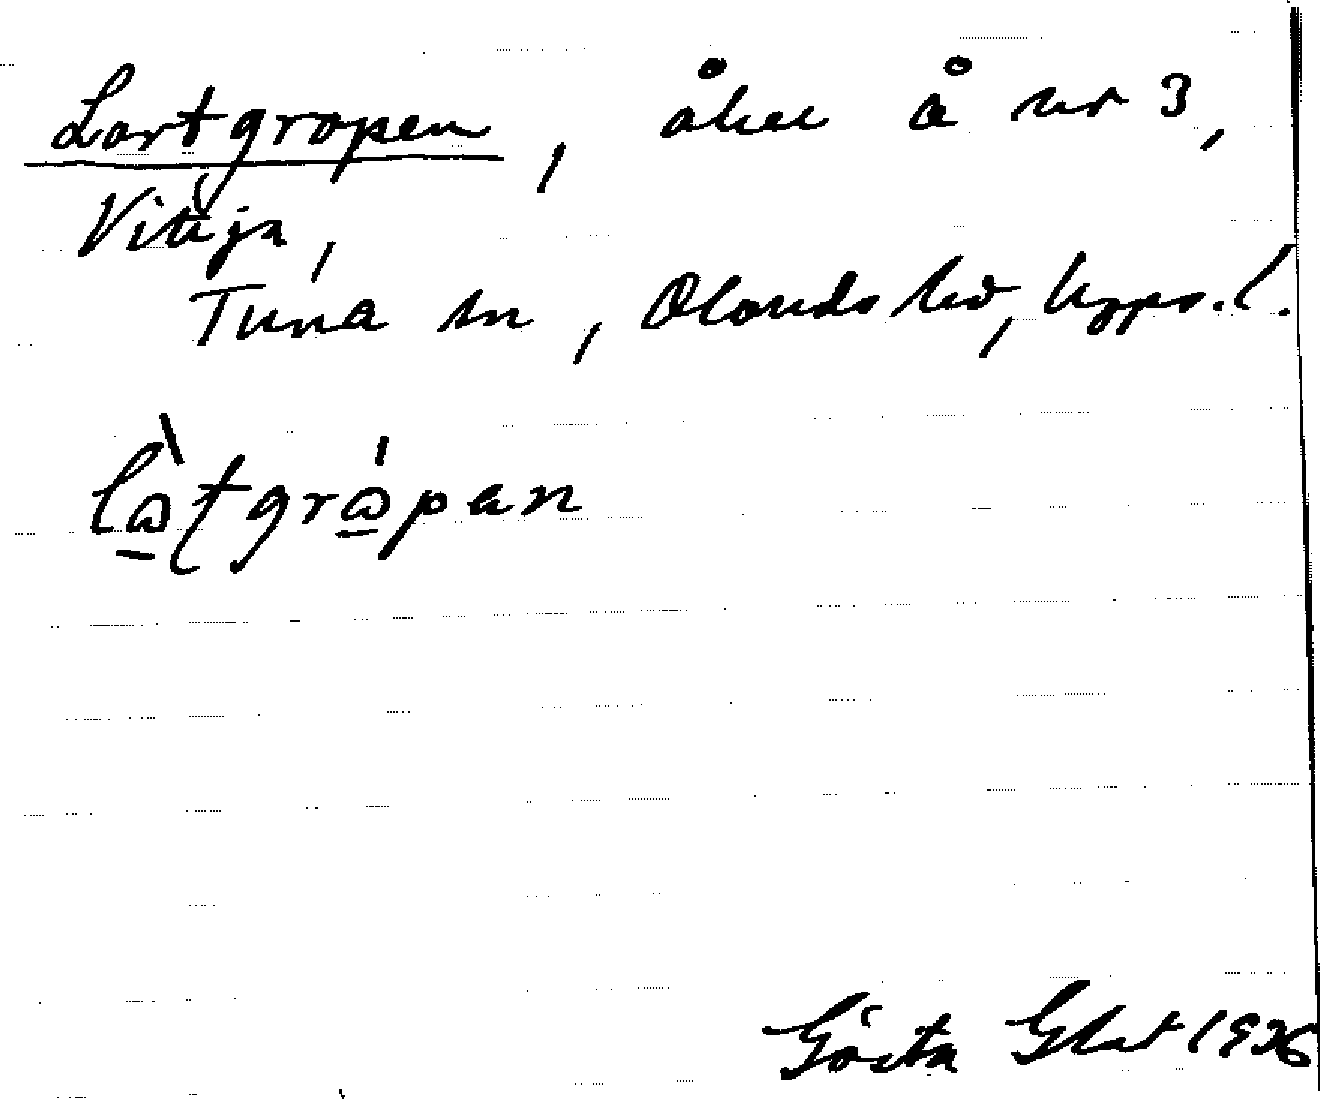 Lortgropen, åker å nr 3,
Vittja,
Tuna sn, Olands hd, Upps. l.
làtgrópan
Gösta Glat 1936